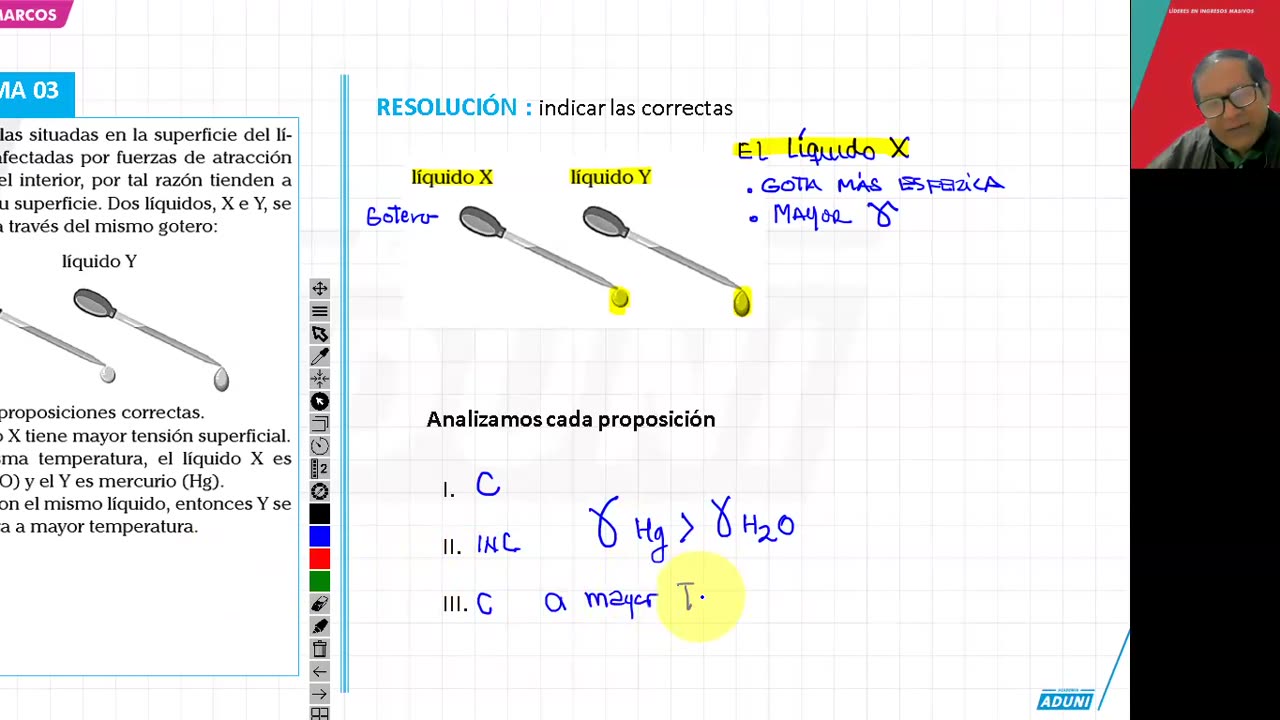 MARCOS
LÍDERES EN INGRESOS MASIVOS
MA 03
las situadas en la superficie del lí-
afectadas por fuerzas de atracción
el interior, por tal razón tienden a
u superficie. Dos líquidos, X e Y, se
a través del mismo gotero:
líquido Y
proposiciones correctas.
o X tiene mayor tensión superficial.
sma temperatura, el líquido X es
O) y el Y es mercurio (Hg).
on el mismo líquido, entonces Y se
ra a mayor temperatura.
RESOLUCIÓN : indicar las correctas
líquido X líquido Y
Gotero
EL Líquido X
• GOTA MÁS ESFERICA
• MAYOR γ
Analizamos cada proposición
I. C
II. INC γ Hg > γ H2O
III. C a mayor T.
2
ACADEMIA
ADUNI